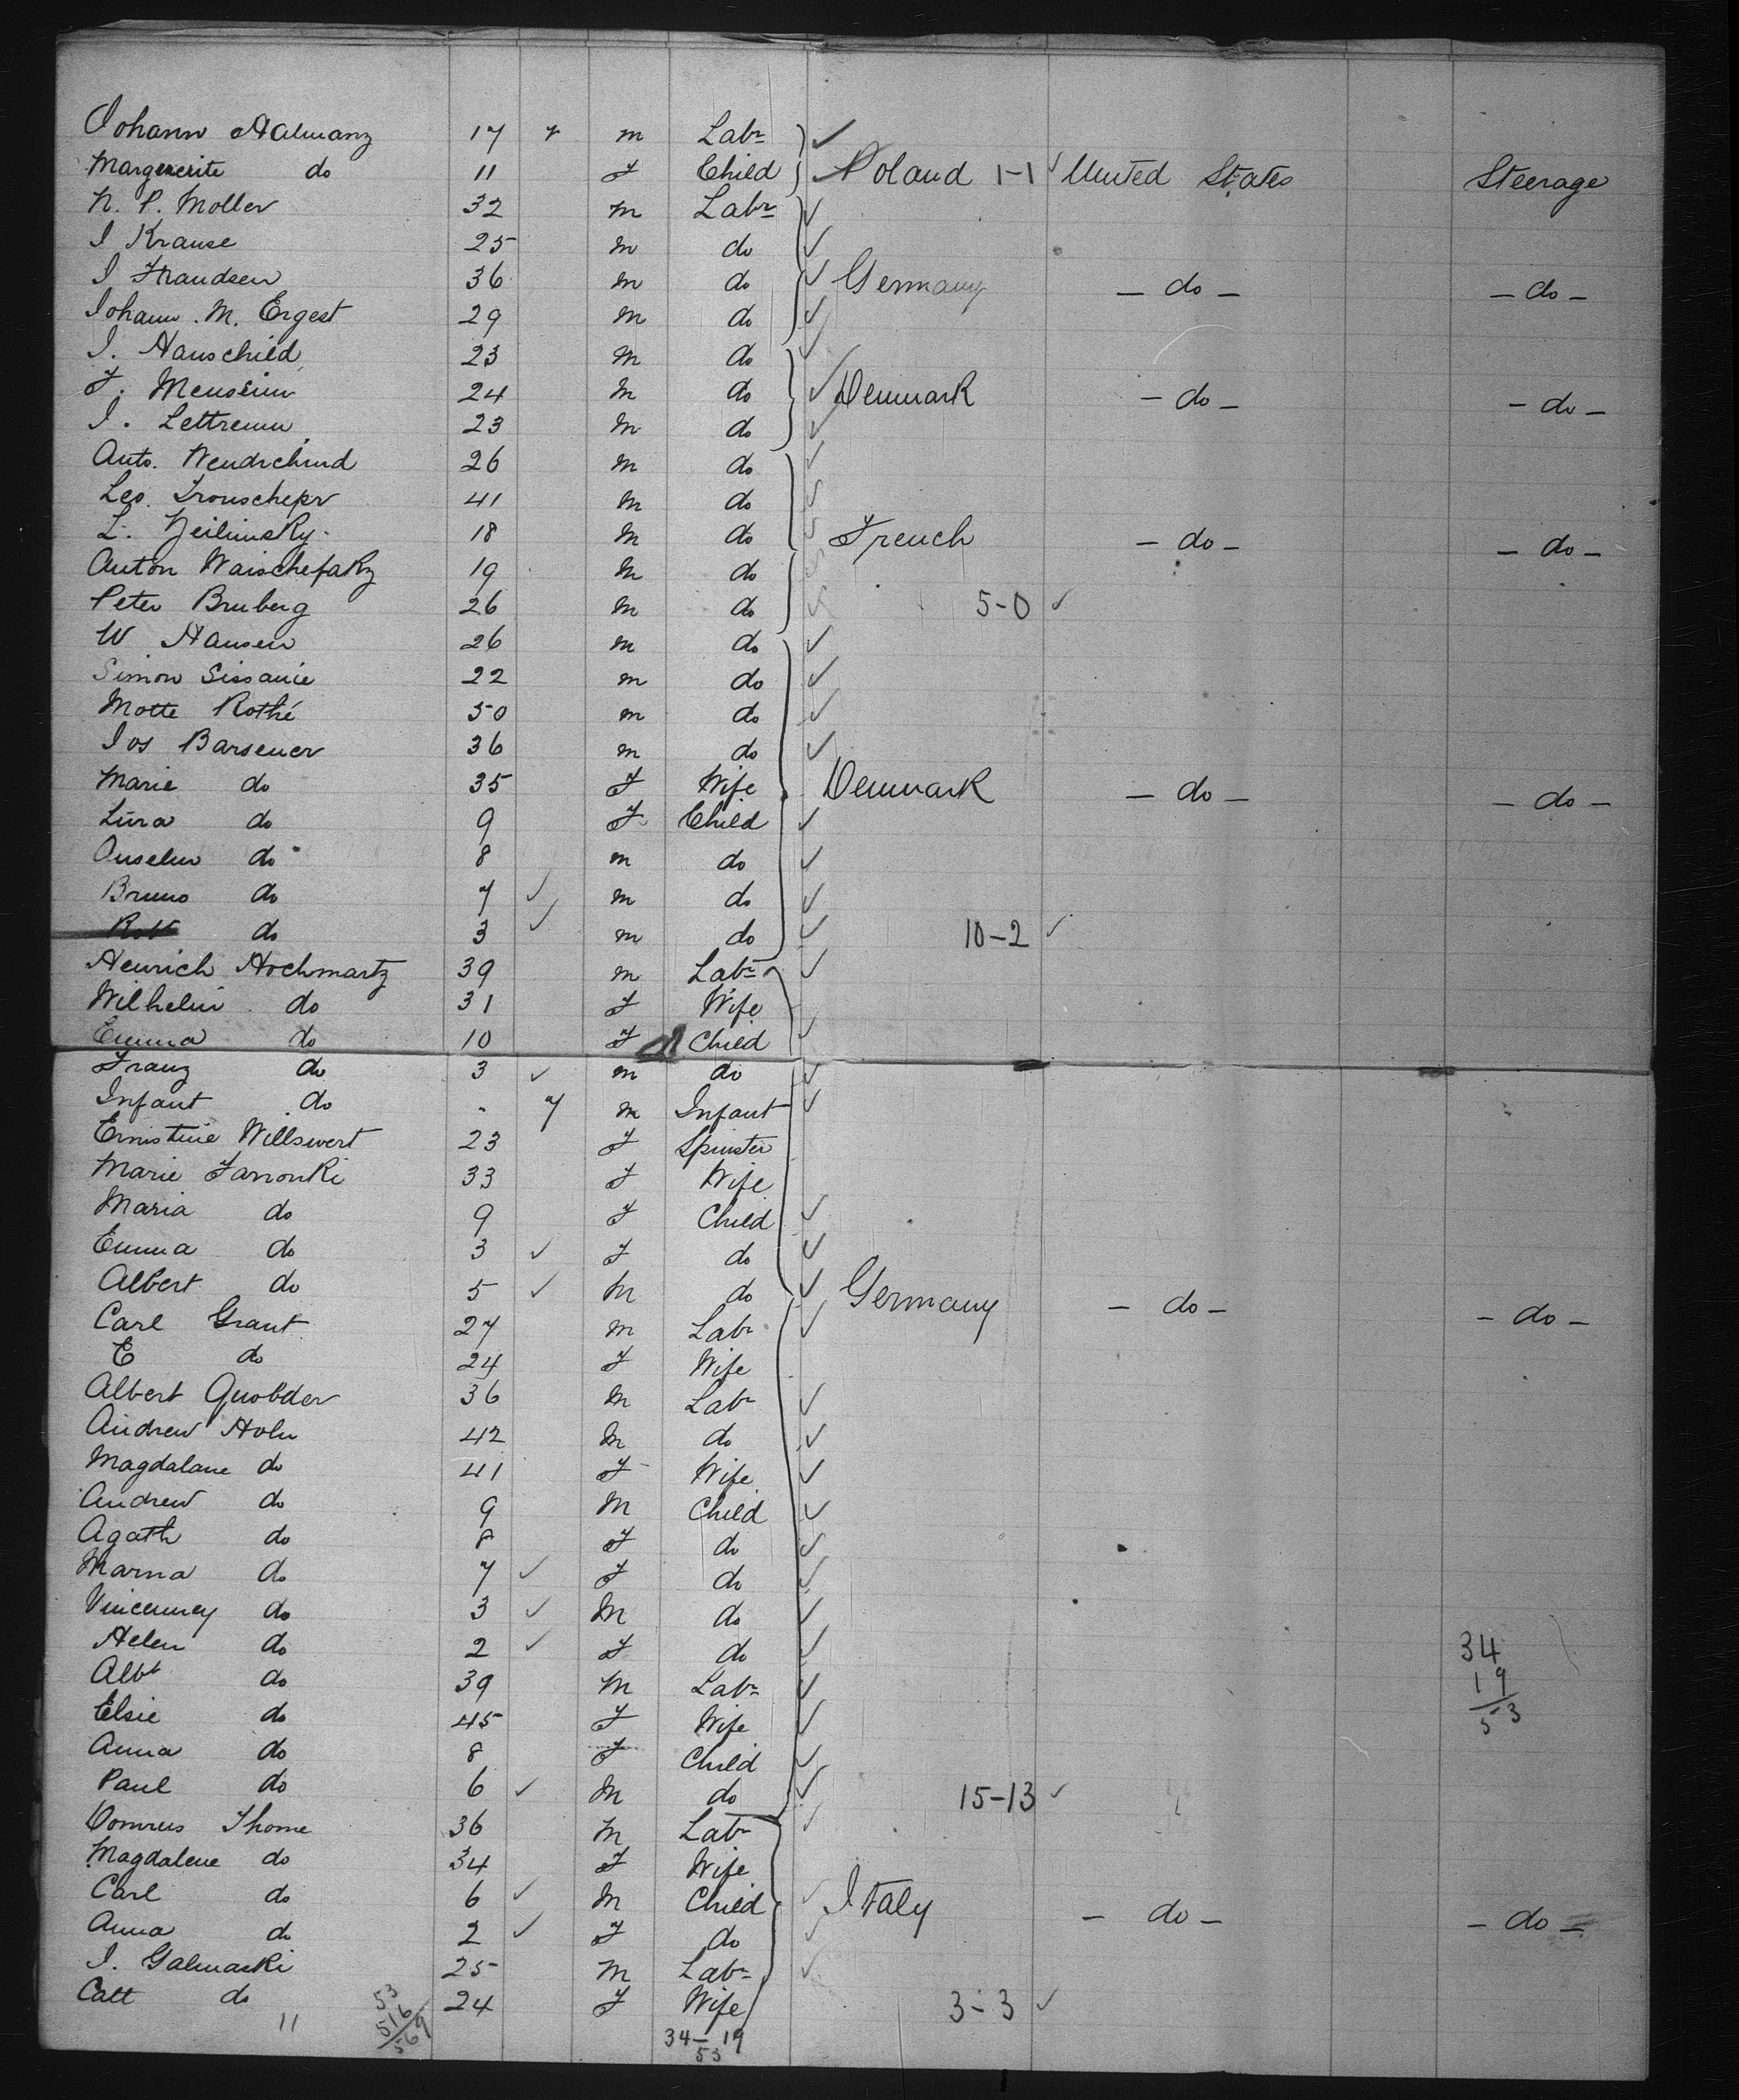 Johann Halmanz 17 m Labr
Marguerite do 11 F Child Poland 1-1 United States Steerage
N. P. Moller 32 m Labr
I Krause 25 m do
I Frandsen 36 m do Germany - do - - do -
Johann. M. Ergest 29 m do
I. Hauschild 23 m do
F. Mensinn 24 m do Denmark - do - - do -
I. Lettremn 23 m do
Anto. Wendschund 26 m do
Leo. Tronschepr 41 m do
L. Zeilinsky 18 m do French - do - - do -
Anton Waischefaky 19 m do
Peter Bruberg 26 m do 5-0
W Hansen 26 m do
Simon Sissanie 22 m do
Motte Rothé 50 m do
Jos Barsener 36 m do
Marie do 35 F Wife Denmark - do - - do -
Lina do 9 F Child
Anselm do 8 m do
Bruno do 7 m do
Robt do 3 m do 10-2
Heinrich Hochmartz 39 m Labr
Wilhelm do 31 F Wife
Emma do 10 F Child
Franz do 3 m do
Infant do 7 m Infant
Ernistine Willswert 23 F Spinster
Marie Janonki 33 F Wife
Maria do 9 F Child
Emma do 3 F do
Albert do 5 m do Germany - do - - do -
Carl Grant 27 m Labr
E do 24 F Wife
Albert Quobder 36 m Labr
Andrew Hohn 42 m do
Magdalane do 41 F Wife
Andrew do 9 m Child
Agath do 8 F do
Marna do 7 F do
Vincenney do 3 m do
Helen do 2 F do 34
Albt do 39 m Labr 19
Elsie do 45 F Wife 53
Anna do 8 F Child
Paul do 6 m do 15-13
Domrus Thome 36 m Labr
Magdalene do 34 F Wife
Carl do 6 m Child Italy - do - - do -
Anna do 2 F do
I. Galmaski 25 m Labr
Catt do 24 F Wife 3-3
11 53 34-19
516 53
569